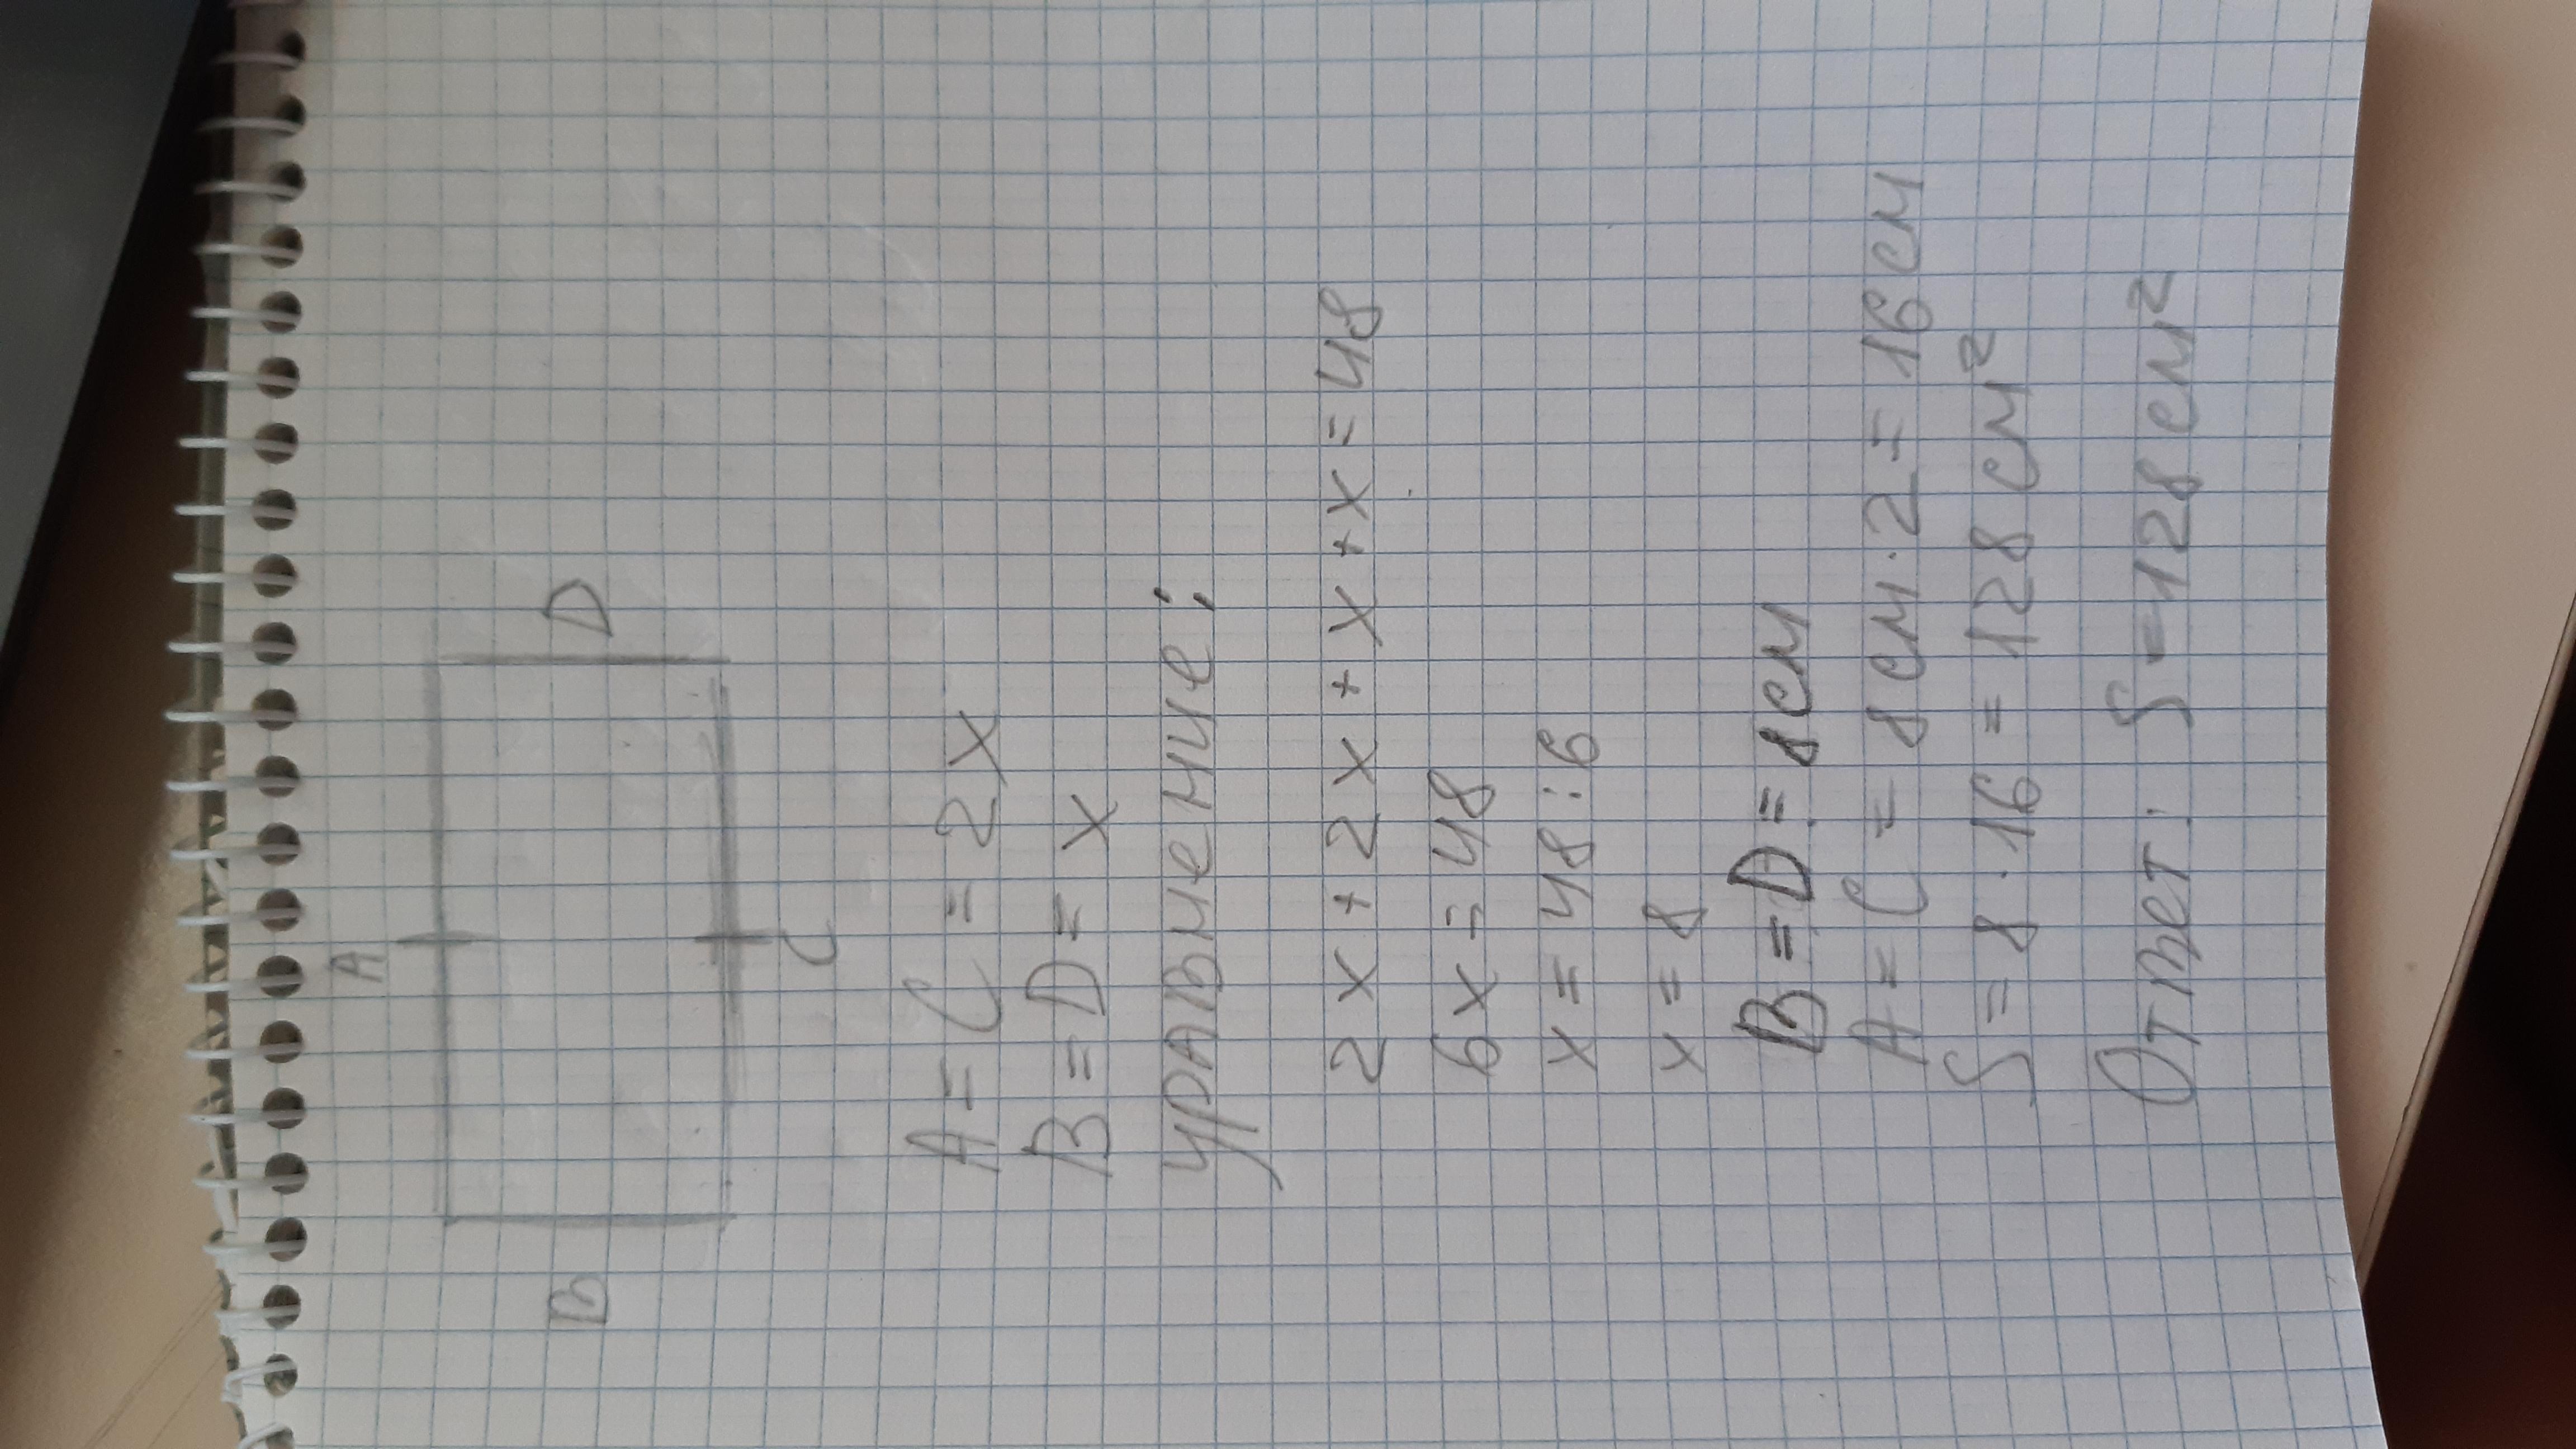 A
B
D
C
A = C = 2x
B = D = x
уравнение:
2x + 2x + x + x = 48
6x = 48
x = 48 : 6
x = 8
B = D = 8см
A = C = 8см · 2 = 16см
S = 8 · 16 = 128 см²
Ответ: S = 128 см²